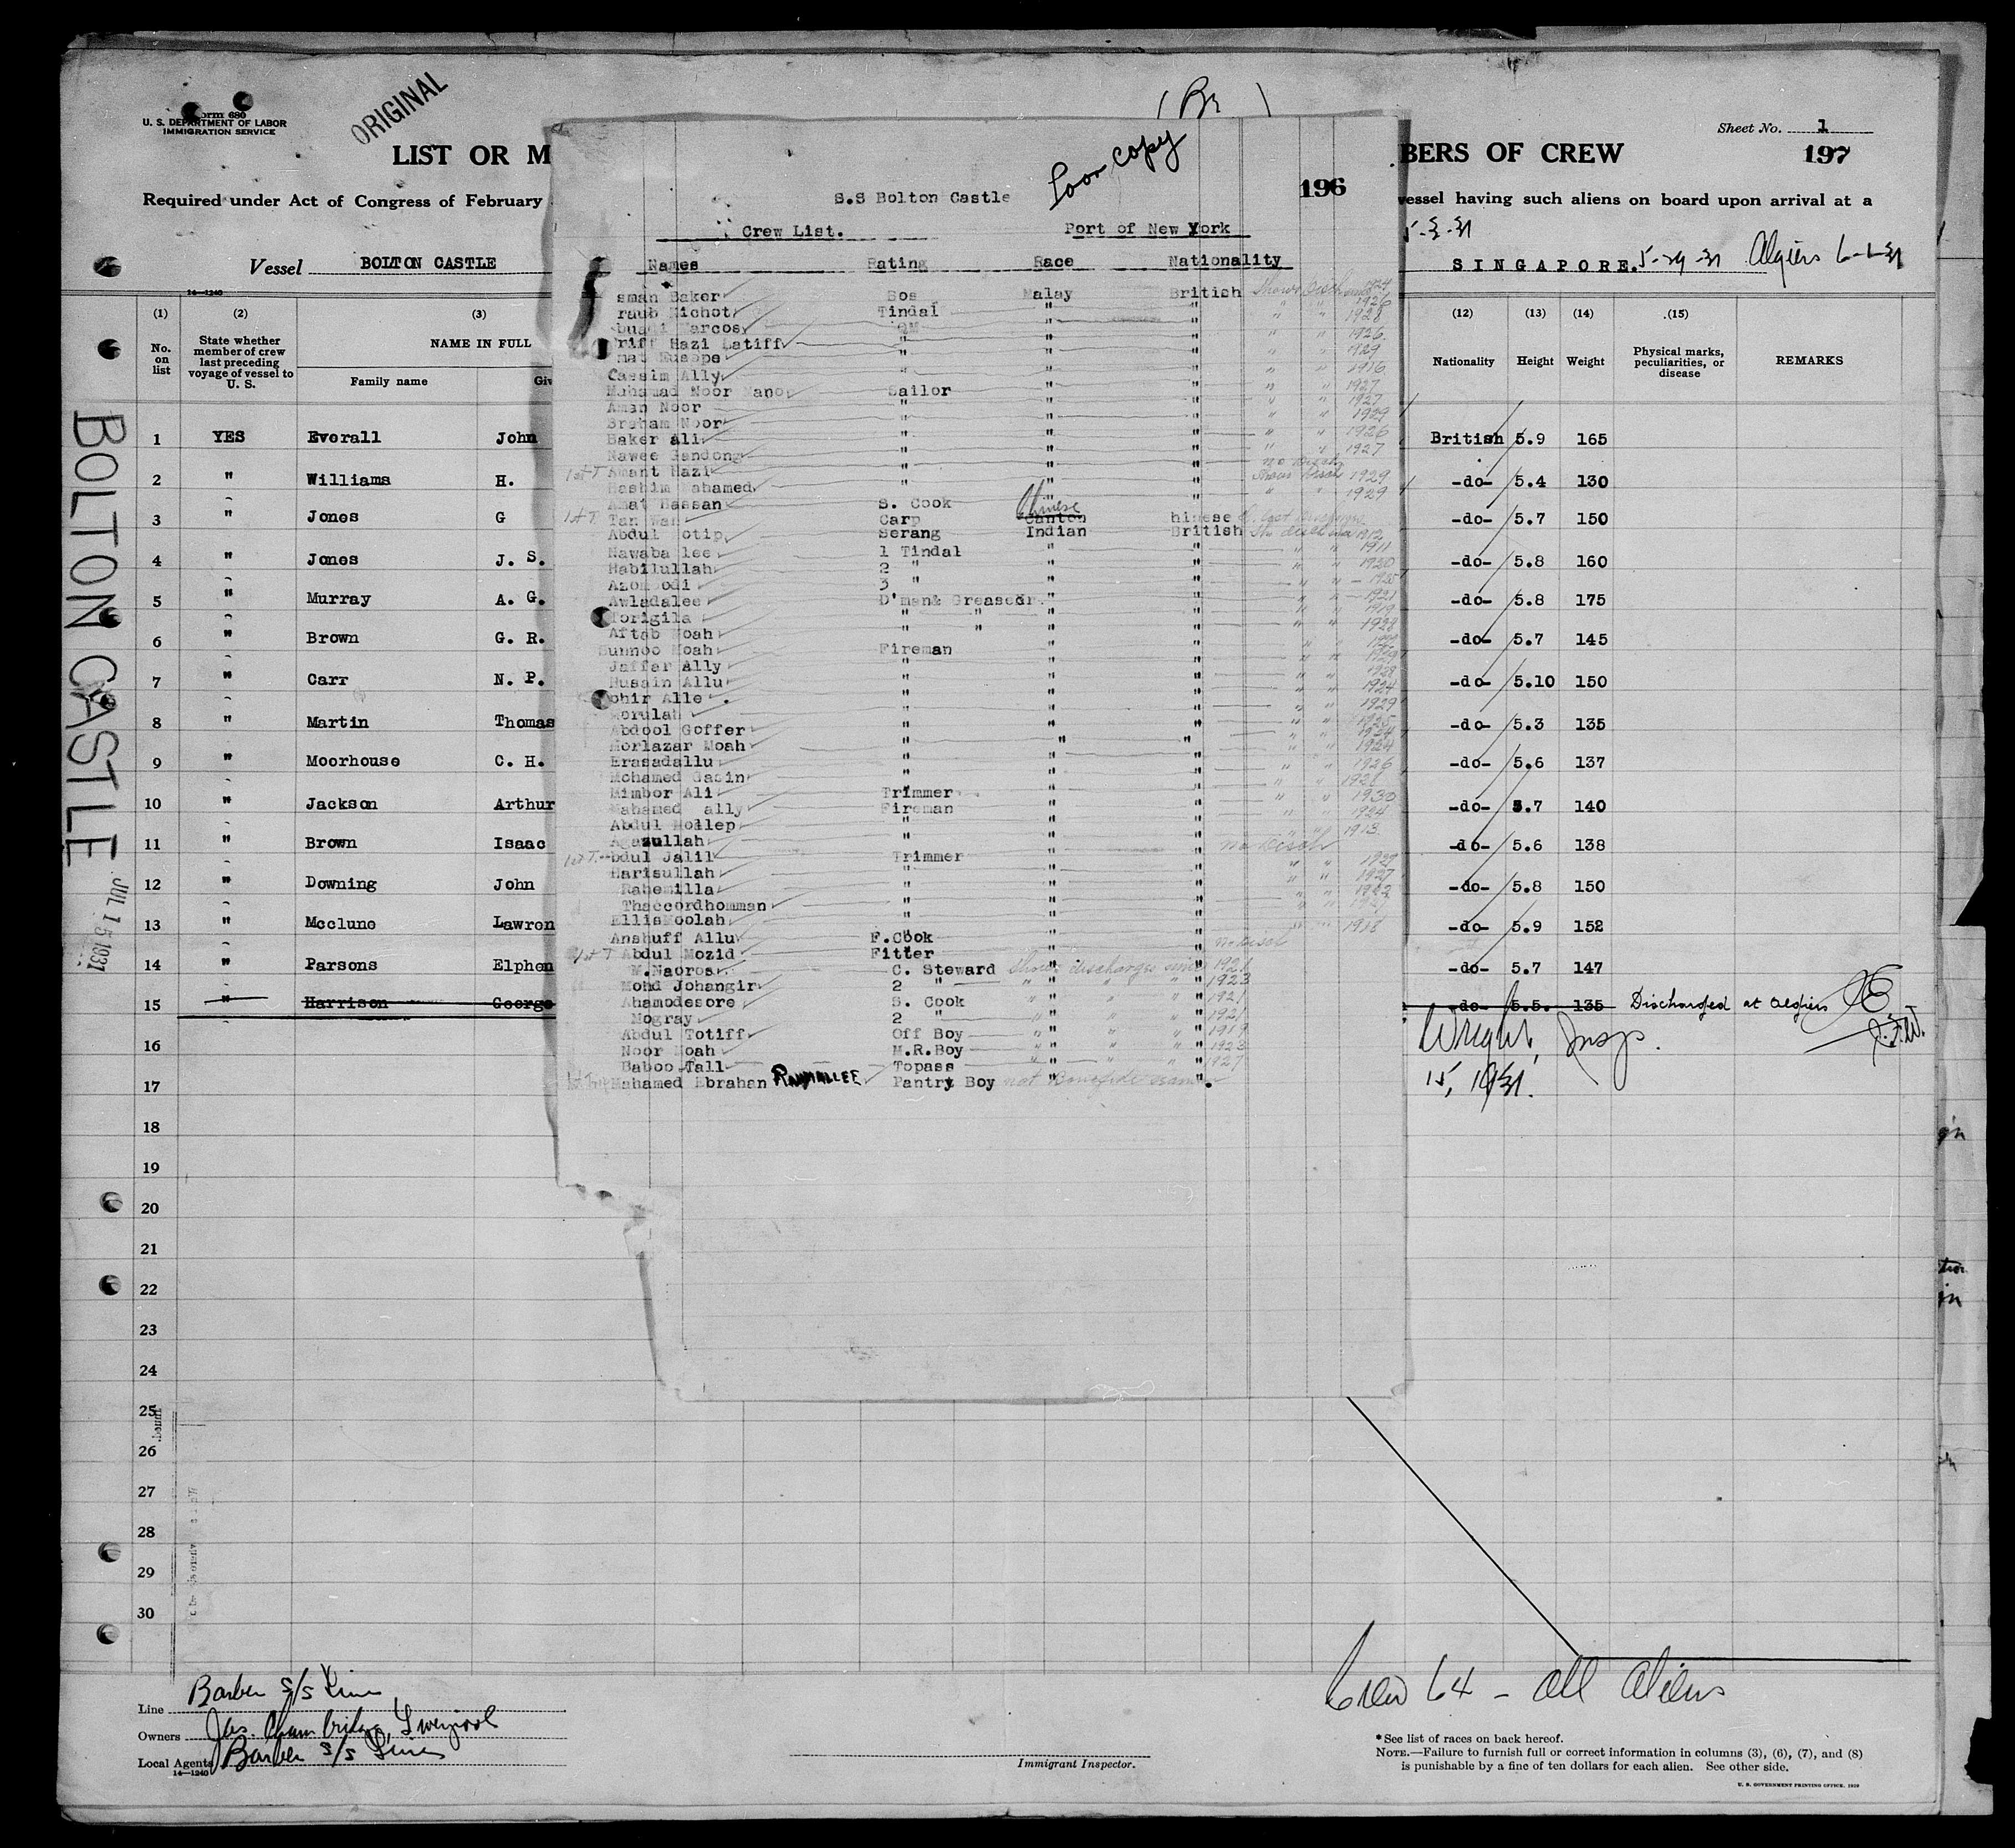 Form 680
U. S. DEPARTMENT OF LABOR
IMMIGRATION SERVICE
ORIGINAL
(Br )
Sheet No. 1
LIST OR M
BERS OF CREW
197
Required under Act of Congress of February
vessel having such aliens on board upon arrival at a
5-3-31
Vessel BOLTON CASTLE
SINGAPORE. 5-29-31 Algiers 6-1-31
14-1240
(1) (2) (3) (12) (13) (14) (15)
No. on list
State whether member of crew last preceding voyage of vessel to U. S.
NAME IN FULL
Family name
Giv
Nationality
Height
Weight
Physical marks, peculiarities, or disease
REMARKS
1 YES Everall John British 5.9 165
2 " Williams H. -do- 5.4 130
3 " Jones G -do- 5.7 150
4 " Jones J. S. -do- 5.8 160
5 " Murray A. G. -do- 5.8 175
6 " Brown G. R. -do- 5.7 145
7 " Carr N. P. -do- 5.10 150
8 " Martin Thomas -do- 5.3 135
9 " Moorhouse C. H. -do- 5.6 137
10 " Jackson Arthur -do- 5.7 140
11 " Brown Isaac -do- 5.6 138
12 " Downing John -do- 5.8 150
13 " Mcclune Lawron -do- 5.9 152
14 " Parsons Elphen -do- 5.7 147
15 " Harrison George -do- 5.5. 135 Discharged at Algiers
J.F.W.
16
Wright, Insp.
17
15, 1931.
18
19
20
21
22
23
24
25
26
27
28
29
30
BOLTON CASTLE
JUL 15 1931
Poor copy
196
S.S Bolton Castle
Crew List. Port of New York
Names Rating Race Nationality
sman Baker Bos Malay British Shows Disch since 1924
raub Michot Tindal " " " " 1926
Marcos QM " " " " 1928
riff Hazi Latiff " " " " " 1926
mat " " " " " 1929
Cassim Ally " " " " 1916
Mahamad Noor Mano Sailor " " " " 1927
Aman Noor " " " " " 1927
Braham Noor " " " " " 1929
Baker Ali " " " " " 1926
Nawee Gandong " " " " 1927
1st T Amant Hazi " " " no Disch
Hashim Mahamed " " " Shows Disch 1929
Amat Hassan S. Cook " " " " 1929
1st T. Tan Wan Carp Canton Chinese hinese
Abdul otip Serang Indian British 1912
Nawaba lee 1 Tindal " " " " 1911
Habilullah 2 " " " " " 1920
Azom odi 3 " " " " "
Awladalee D'man& Greaseer " " " " 1921
Torigila " " " " " " 1919
Aftab Moah " " " " " " 1928
Sunnoo Moah Fireman " "
Jaffar Ally " " "
Husain Allu " " " " " 1928
ohir Alle " " " " " 1924
Morulah " " " " " 1929
Abdool Goffer " " "
Morlazar Moah " " " " " 1924
Erasadallu " " " " " 1926
Mohamed Gasin " " " " " 1928
Mimbor Ali Trimmer " " " " 1930
Mahamed ally Fireman " " " " 1924
Abdul Mollep " " " " " 1913
Agazullah " " "
1st T. bdul Jalil Trimmer " " no Disch
Harisullah " " " " " 1929
Rahemilla " " " " " 1927
Thaccordhomman " " " " "
Ellis Moolah " " "
Anshuff Allu F.Cook " " " " 1918
1st T Abdul Mozid Fitter " " no Disch
M.Naoros C. Steward shows discharges since 1921
Mohd Johangir 2 " " " 1923
Ahamodesore S. Cook " " 1921
Mogray 2 " " " 1921
Abdul Totiff Off Boy " " 1919
Noor Moah M.R.Boy " " 1923
Baboo Tall Topass " " 1927
1st Trip Mahamed Ebrahan RAMJALLEE Pantry Boy not Bonafide seaman "
Crew 64 - all aliens
Line Barber s/s Line
Owners Jas. Chambers, Liverpool
Local Agents Barber s/s Lines
14-1240
Immigrant Inspector.
* See list of races on back hereof.
NOTE.—Failure to furnish full or correct information in columns (3), (6), (7), and (8)
is punishable by a fine of ten dollars for each alien. See other side.
U. S. GOVERNMENT PRINTING OFFICE. 1929